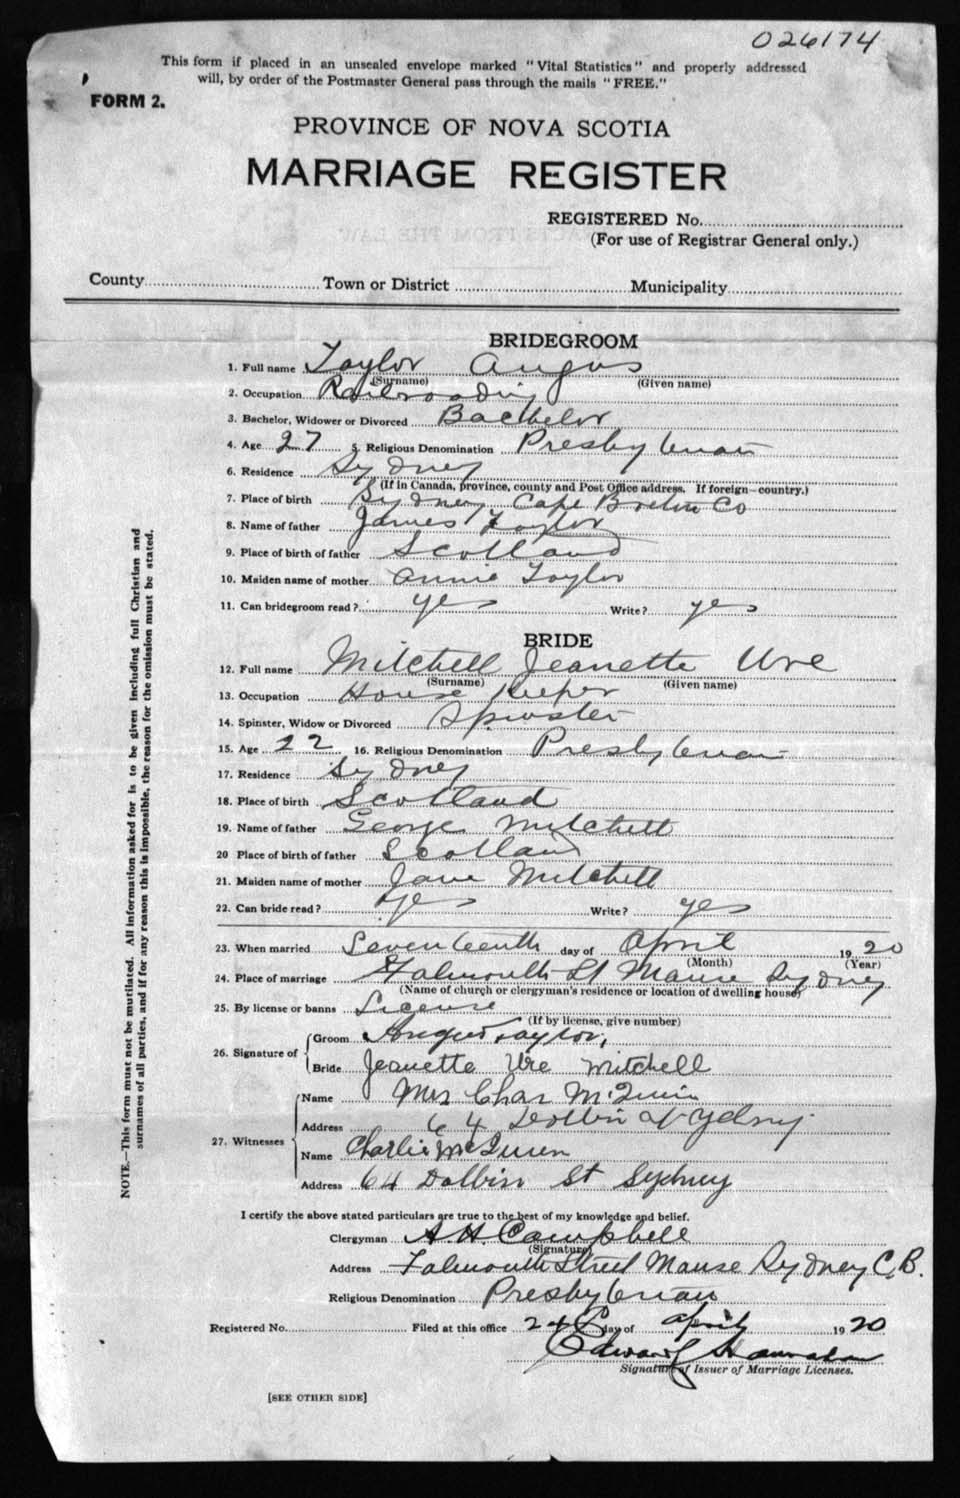 026174
This form if placed in an unsealed envelope marked "Vital Statistics" and properly addressed
will, by order of the Postmaster General pass through the mails "FREE."
FORM 2.
PROVINCE OF NOVA SCOTIA
MARRIAGE REGISTER
REGISTERED No.
(For use of Registrar General only.)
County Town or District Municipality
BRIDEGROOM
1. Full name Taylor Angus
(Surname) (Given name)
2. Occupation Railroading
3. Bachelor, Widower or Divorced Bachelor
4. Age 27 5. Religious Denomination Presbyterian
6. Residence Sydney
(If in Canada, province, county and Post Office address. If foreign—country.)
7. Place of birth Sydney, Cape Breton Co
8. Name of father James Taylor
9. Place of birth of father Scotland
10. Maiden name of mother Annie Taylor
11. Can bridegroom read? yes Write? yes
BRIDE
12. Full name Mitchell Jeanette Ure
(Surname) (Given name)
13. Occupation House Keeper
14. Spinster, Widow or Divorced Spinster
15. Age 22 16. Religious Denomination Presbyterian
17. Residence Sydney
18. Place of birth Scotland
19. Name of father George Mitchell
20 Place of birth of father Scotland
21. Maiden name of mother Jane Mitchell
22. Can bride read? Yes Write? yes
23. When married Seventeenth day of April 1920
(Month) (Year)
24. Place of marriage Falmouth St Manse Sydney
(Name of church or clergyman's residence or location of dwelling house)
25. By license or banns License
(If by license, give number)
26. Signature of
Groom Angus Taylor,
Bride Jeanette Ure Mitchell
27. Witnesses
Name Mrs Chas
Address 64 St Sydney
Name Charlie
Address 64 Dolbin St Sydney
I certify the above stated particulars are true to the best of my knowledge and belief.
Clergyman A. H. Campbell
(Signature)
Address Falmouth Street Manse Sydney C.B.
Religious Denomination Presbyterian
Registered No. Filed at this office 24 day of April 1920
Edward
Signature of Issuer of Marriage Licenses.
[SEE OTHER SIDE]
NOTE.—This form must not be mutilated. All information asked for is to be given including full Christian and
surnames of all parties, and if for any reason this is impossible, the reason for the omission must be stated.